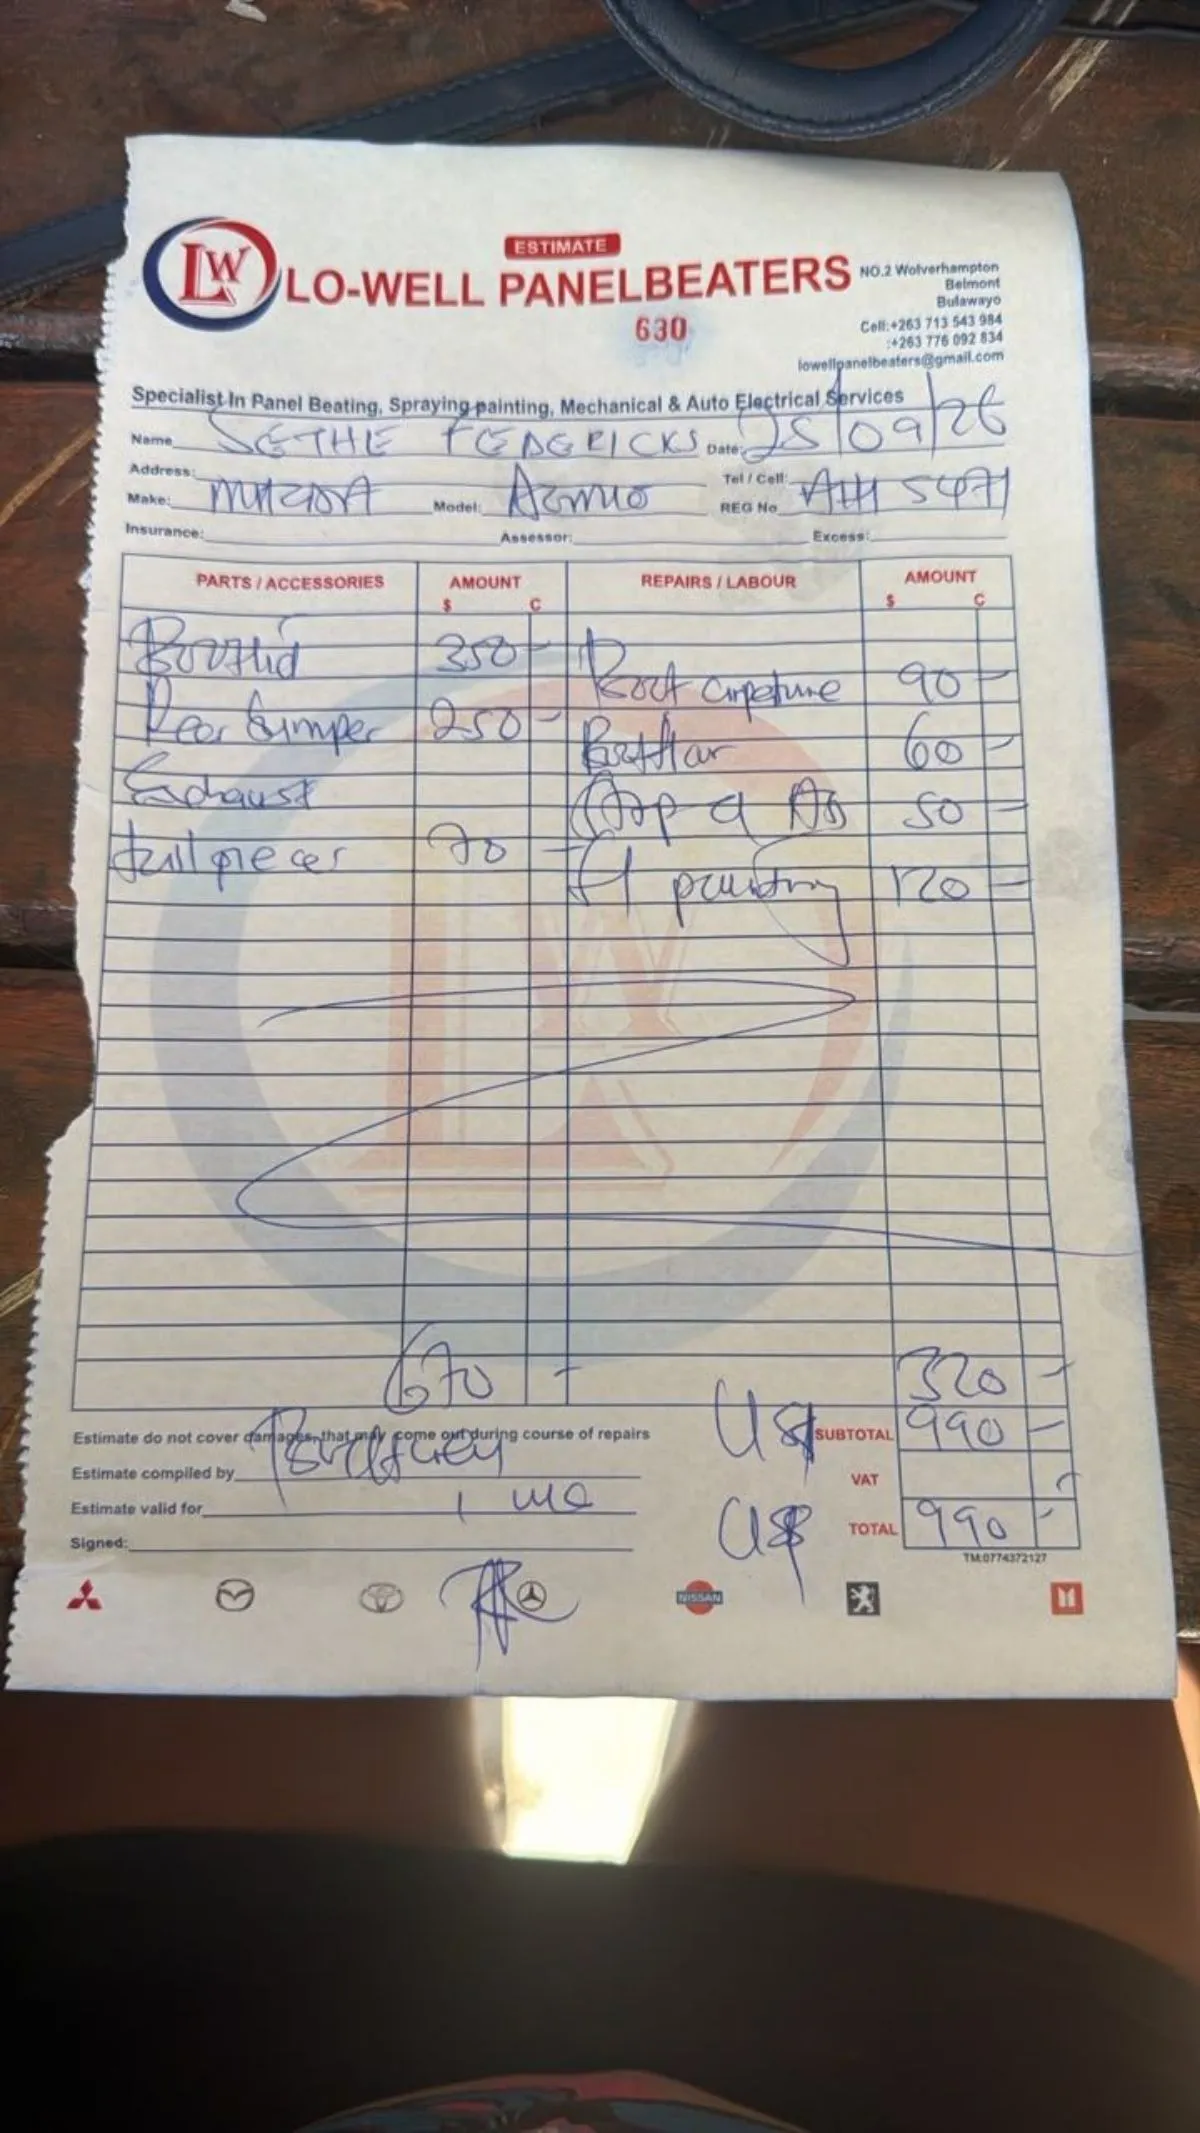 ESTIMATE
LW LO-WELL PANELBEATERS
630
NO.2 Wolverhampton
Belmont
Bulawayo
Cell:+263 713 543 984
:+263 776 092 834
lowellpanelbeaters@gmail.com
Specialist In Panel Beating, Spraying painting, Mechanical & Auto Electrical Services
Name SETHE FEDERICKS Date: 25/09/26
Address: Tel / Cell:
Make: MAZDA Model: REG No
Insurance: Assessor: Excess:
PARTS / ACCESSORIES AMOUNT REPAIRS / LABOUR AMOUNT
$ C $ C
Bootlid 350 -
Boot 90 -
Rear bumper 250 -
60 -
Exhaust
50 -
tail pieces 70 -
painting 120 -
670 - 320 -
US$ SUBTOTAL 990 -
Estimate do not cover damages, that may come out during course of repairs
Estimate compiled by
VAT
Estimate valid for 1
US$ TOTAL 990 -
Signed:
TM:0774372127
NISSAN